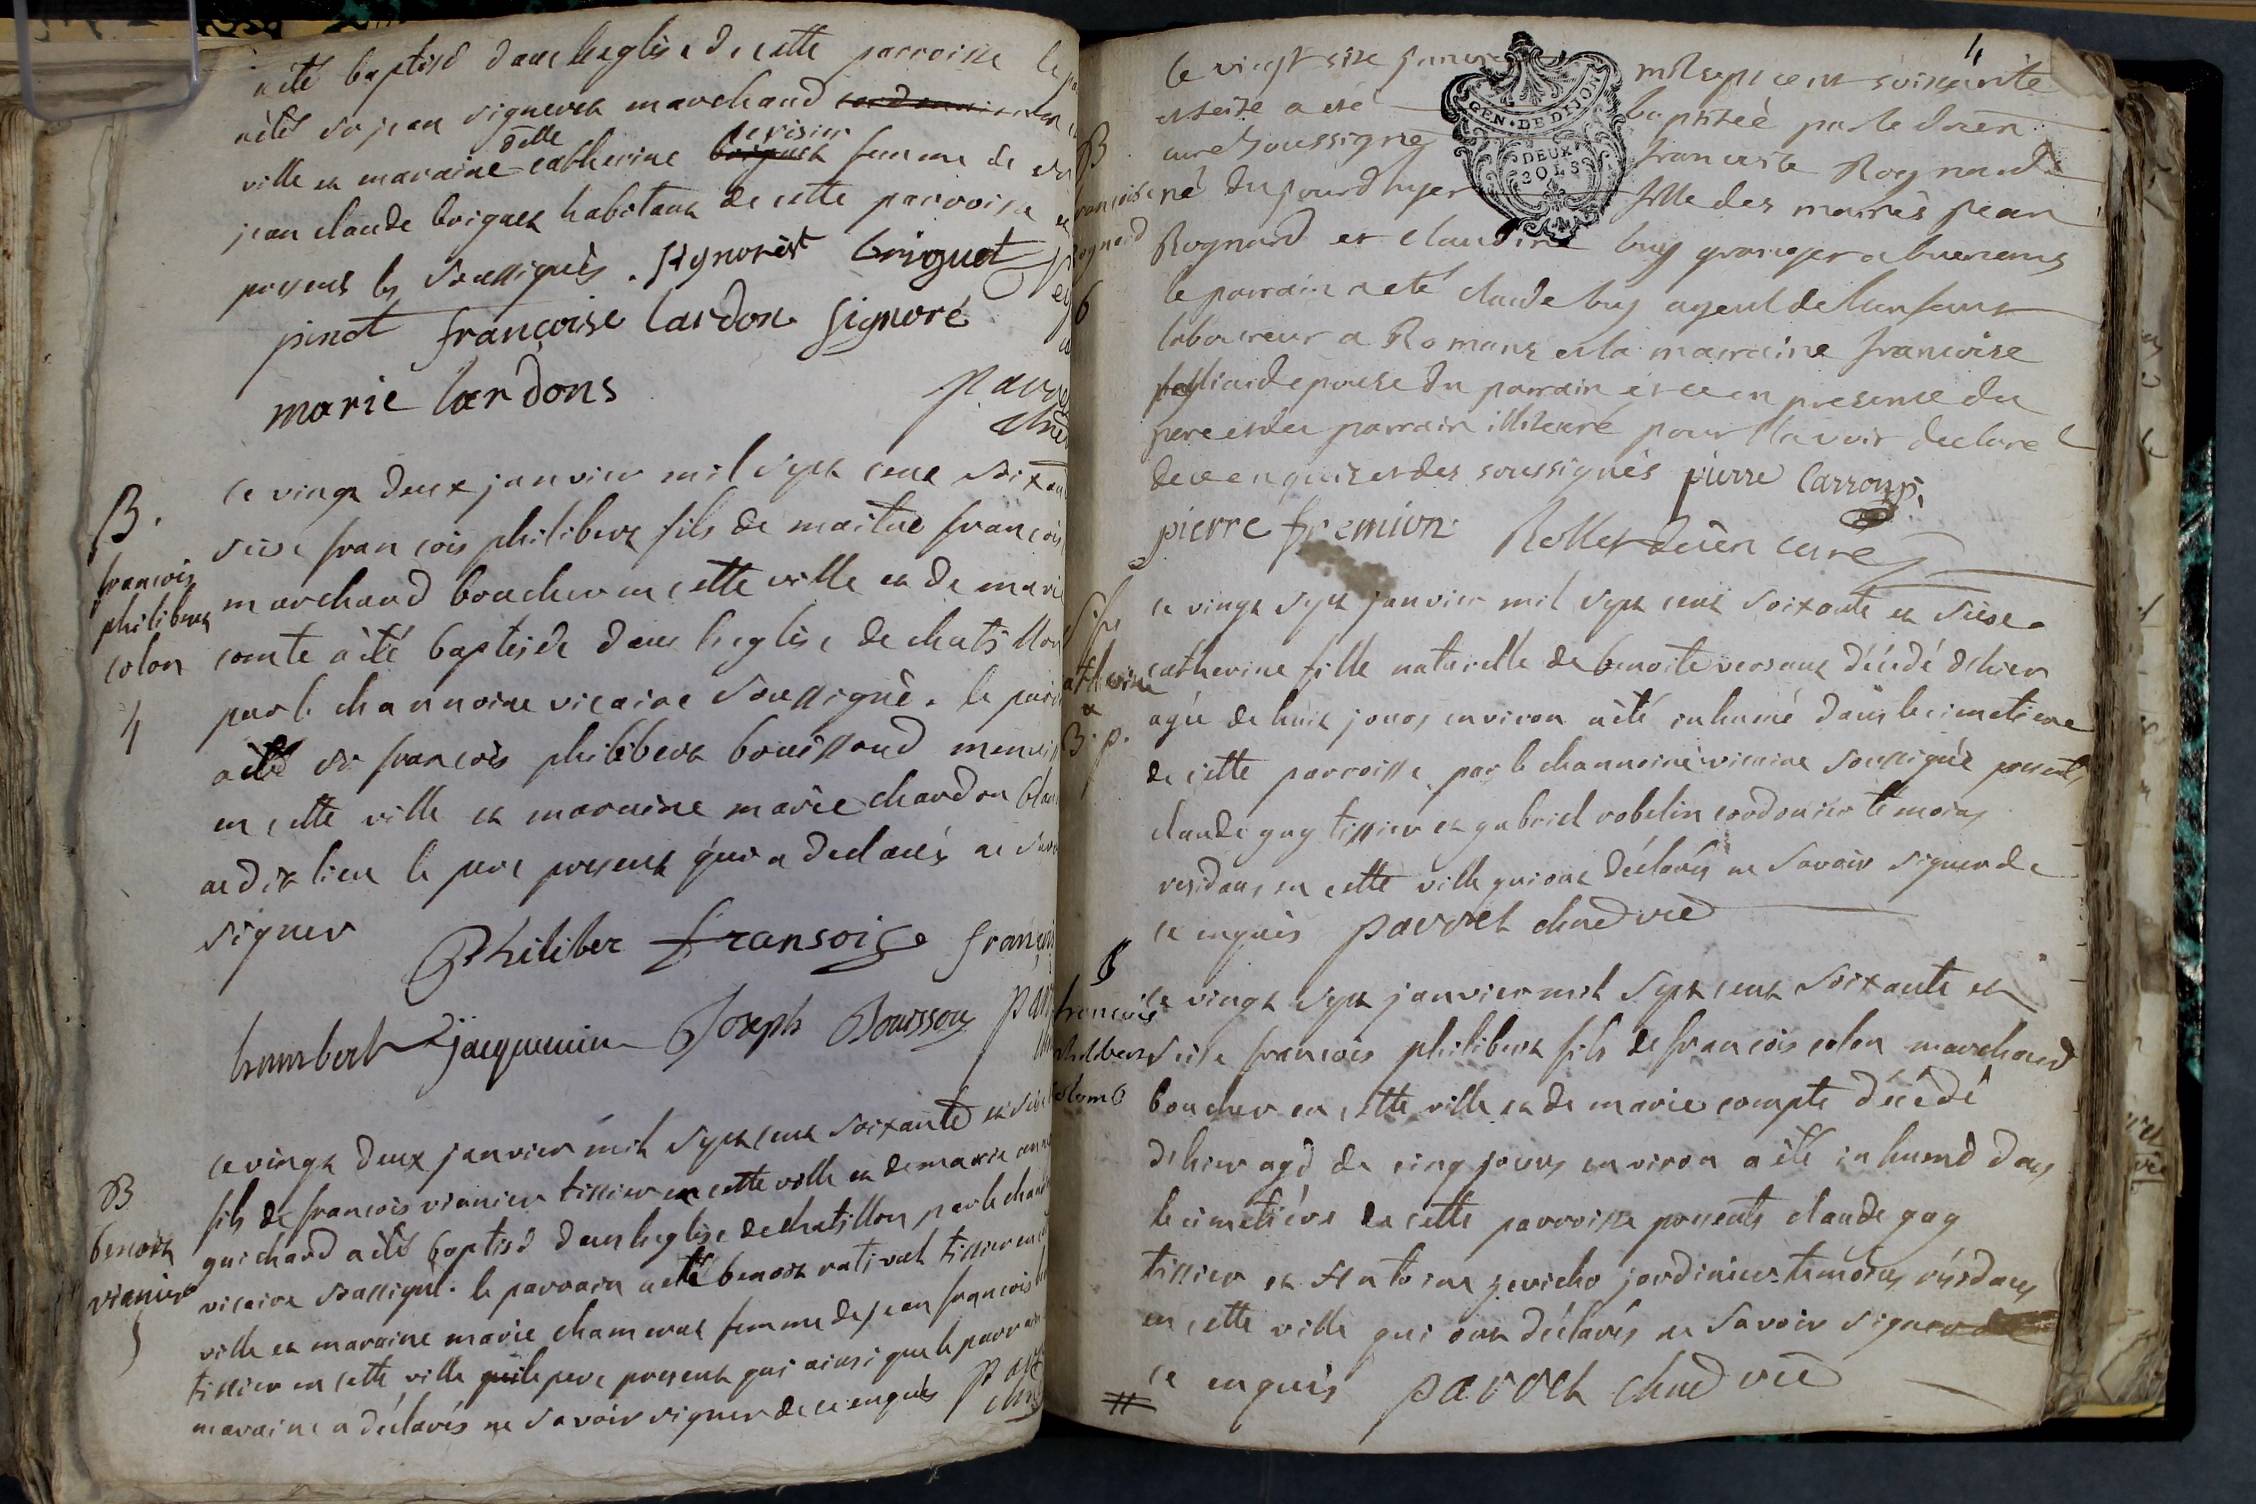 a été baptisé dans l'eglise de cette parroisse le
a été sr jean signoret marchand
ville et maraine delle catherine devisier femme de sr
jean claude briguet habitans de cette parroisse
presens les soussignés. Signorét briguet
pinot françoise lardon signoré
marie lardons
pavv
chne
B.
francois
philibert
colon
4
ce vingt deux janvier mil sept cent soixan
seise francois philibert fils de maitre francois
marchand boucher en cette ville et de marie
comte a été baptisé dans l'eglise de chatillon
par le channoine vicaire soussigné. le par
a été sr francois philibert bouissoud menuis
en cette ville et maraine marie chardon
audit lieu le pere present qui a declarés ne savo
signer
Philiber fransoise françoi
humbert jacquemin Joseph Bouissou pav
B
benoit
vianier
5
ce vingt deux janvier mil sept cent soixante et seise
fils de francois vianier tissier en cette ville et de marie anne
guichard a été baptisé dans l'eglise de chatillon par le chan
vicaire soussigné. le parrain a été benoit rativet tissier en
ville et maraine marie chamerat femme de jean francois
tissier en cette ville le pere present qui ainsi que le parrain
maraine a déclarés ne savoir signer de ce enquis pavv
chne
4
GEN · DE DIJON
DEUX
SOLS
B
francoise
Rognard
6
le vingt six janvier mil sept cent soixante
et seize a eté baptisée par le doien
curé soussigné francoise Rognard
né du jourd'hyer fille des mariés jean
Rognard et claudine buy granger a buenans
le parrain a eté claude buy ayeul de l'enfant
laboureur a Romans et la marraine francoise
épouse du parrain et ce en presence du
pere et du parrain illiteré pour l'avoir declaré
de ce enquis et des soussignés pierre Carron
pierre fremion Rollet doien curé
Sre
atherine
B. p.
ce vingt sept janvier mil sept cent soixante et seise
catherine fille naturelle de benoite versaut décédé d'hier
agée de huit jours environ a été inhumé dans le cimetiere
de cette parroisse par le channoine vicaire soussigné presents
claude guy tissier et gabriel robelin cordonier temoins
residans en cette ville qui ont déclarés ne savoir signer de
ce enquis pavvet chne vre
S
francois
philibert
colomb
ce vingt sept janvier mil sept cent soixante et
seise francois philibert fils de francois colon marchand
boucher en cette ville et de marie compte décédé
d'hier agé de cinq jours environ a été inhumé dans
le cimetiére de cette parroisse presents claude guy
tissier et antoine jericho jardinier temoins résidans
en cette ville qui ont déclarés ne savoir signer de
ce enquis pavvet chne vre